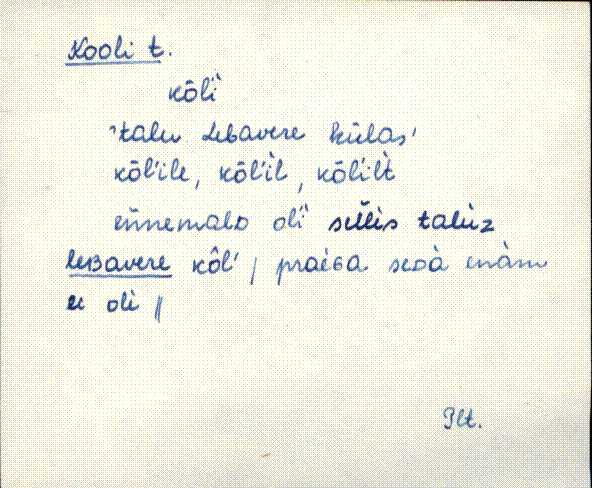 Kooli t.
kōl'ì
'talu Lebavere külas'
kōl'ile, kōl'ìl, kōl'ilt
ennemalD olì sellès talùz
leBavere kôl' | praeGa seDà enàm
ei olì ||
Plt.